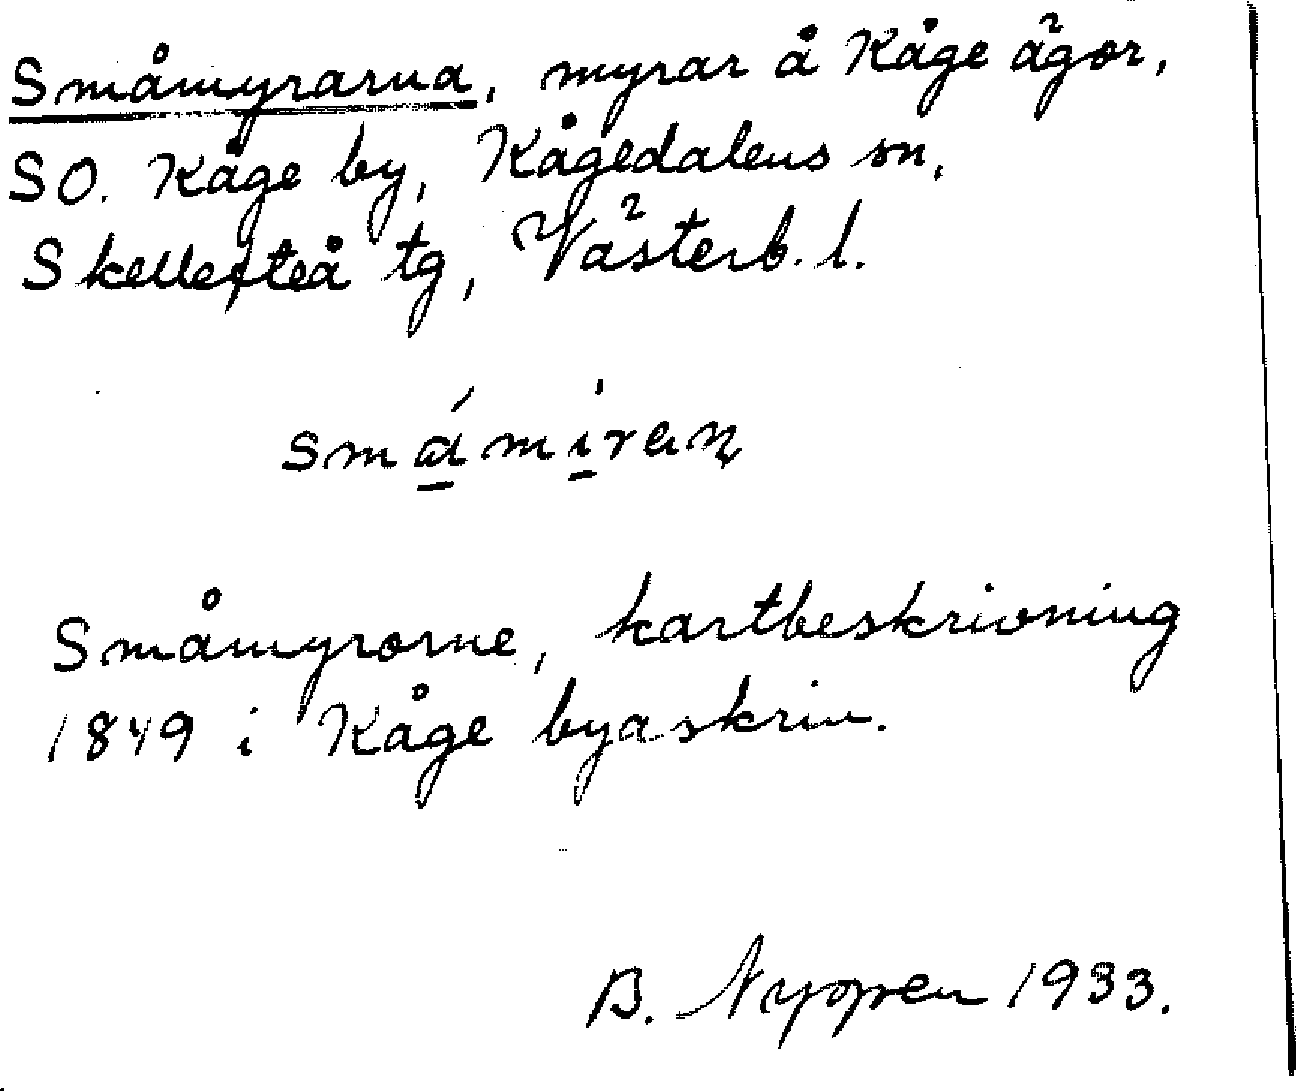 Småmyrarna, myrar å Kåge ägor,
SO. Kåge by, Kågedalens sn,
Skellefteå tg, Västerb. l.
Småmyrorne, kartbeskrivning
1849 i Kåge byaskriv.
B. Nyppen 1933.